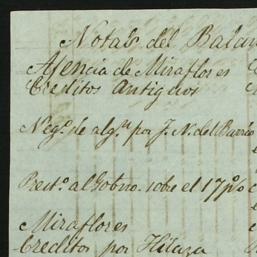 Notas del Balan
Ajencia de Miraflores
Creditos antiguos
Negº. de algⁿ por J. N. del Barrio
Prestº. al Gobnº. sobre el 17 p%
Miraflores
Creditos por Hilaza